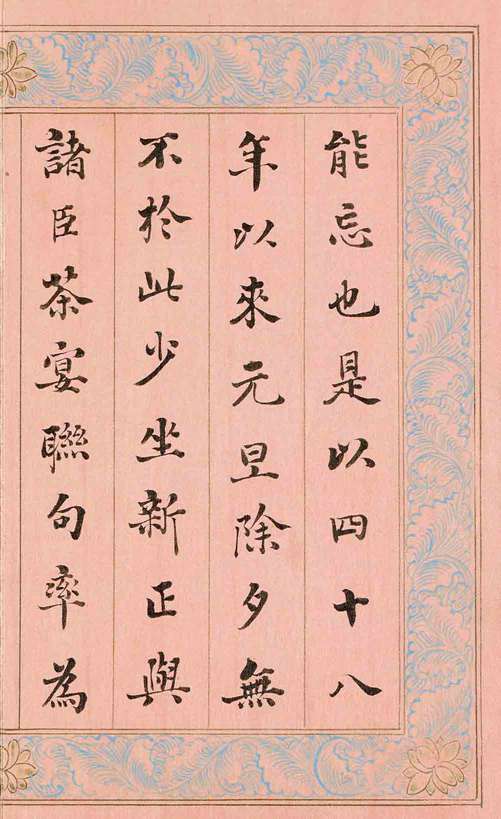 能忘也是以四十八
年以來元旦除夕無
不於此少坐新正與
諸臣茶宴聯句率為